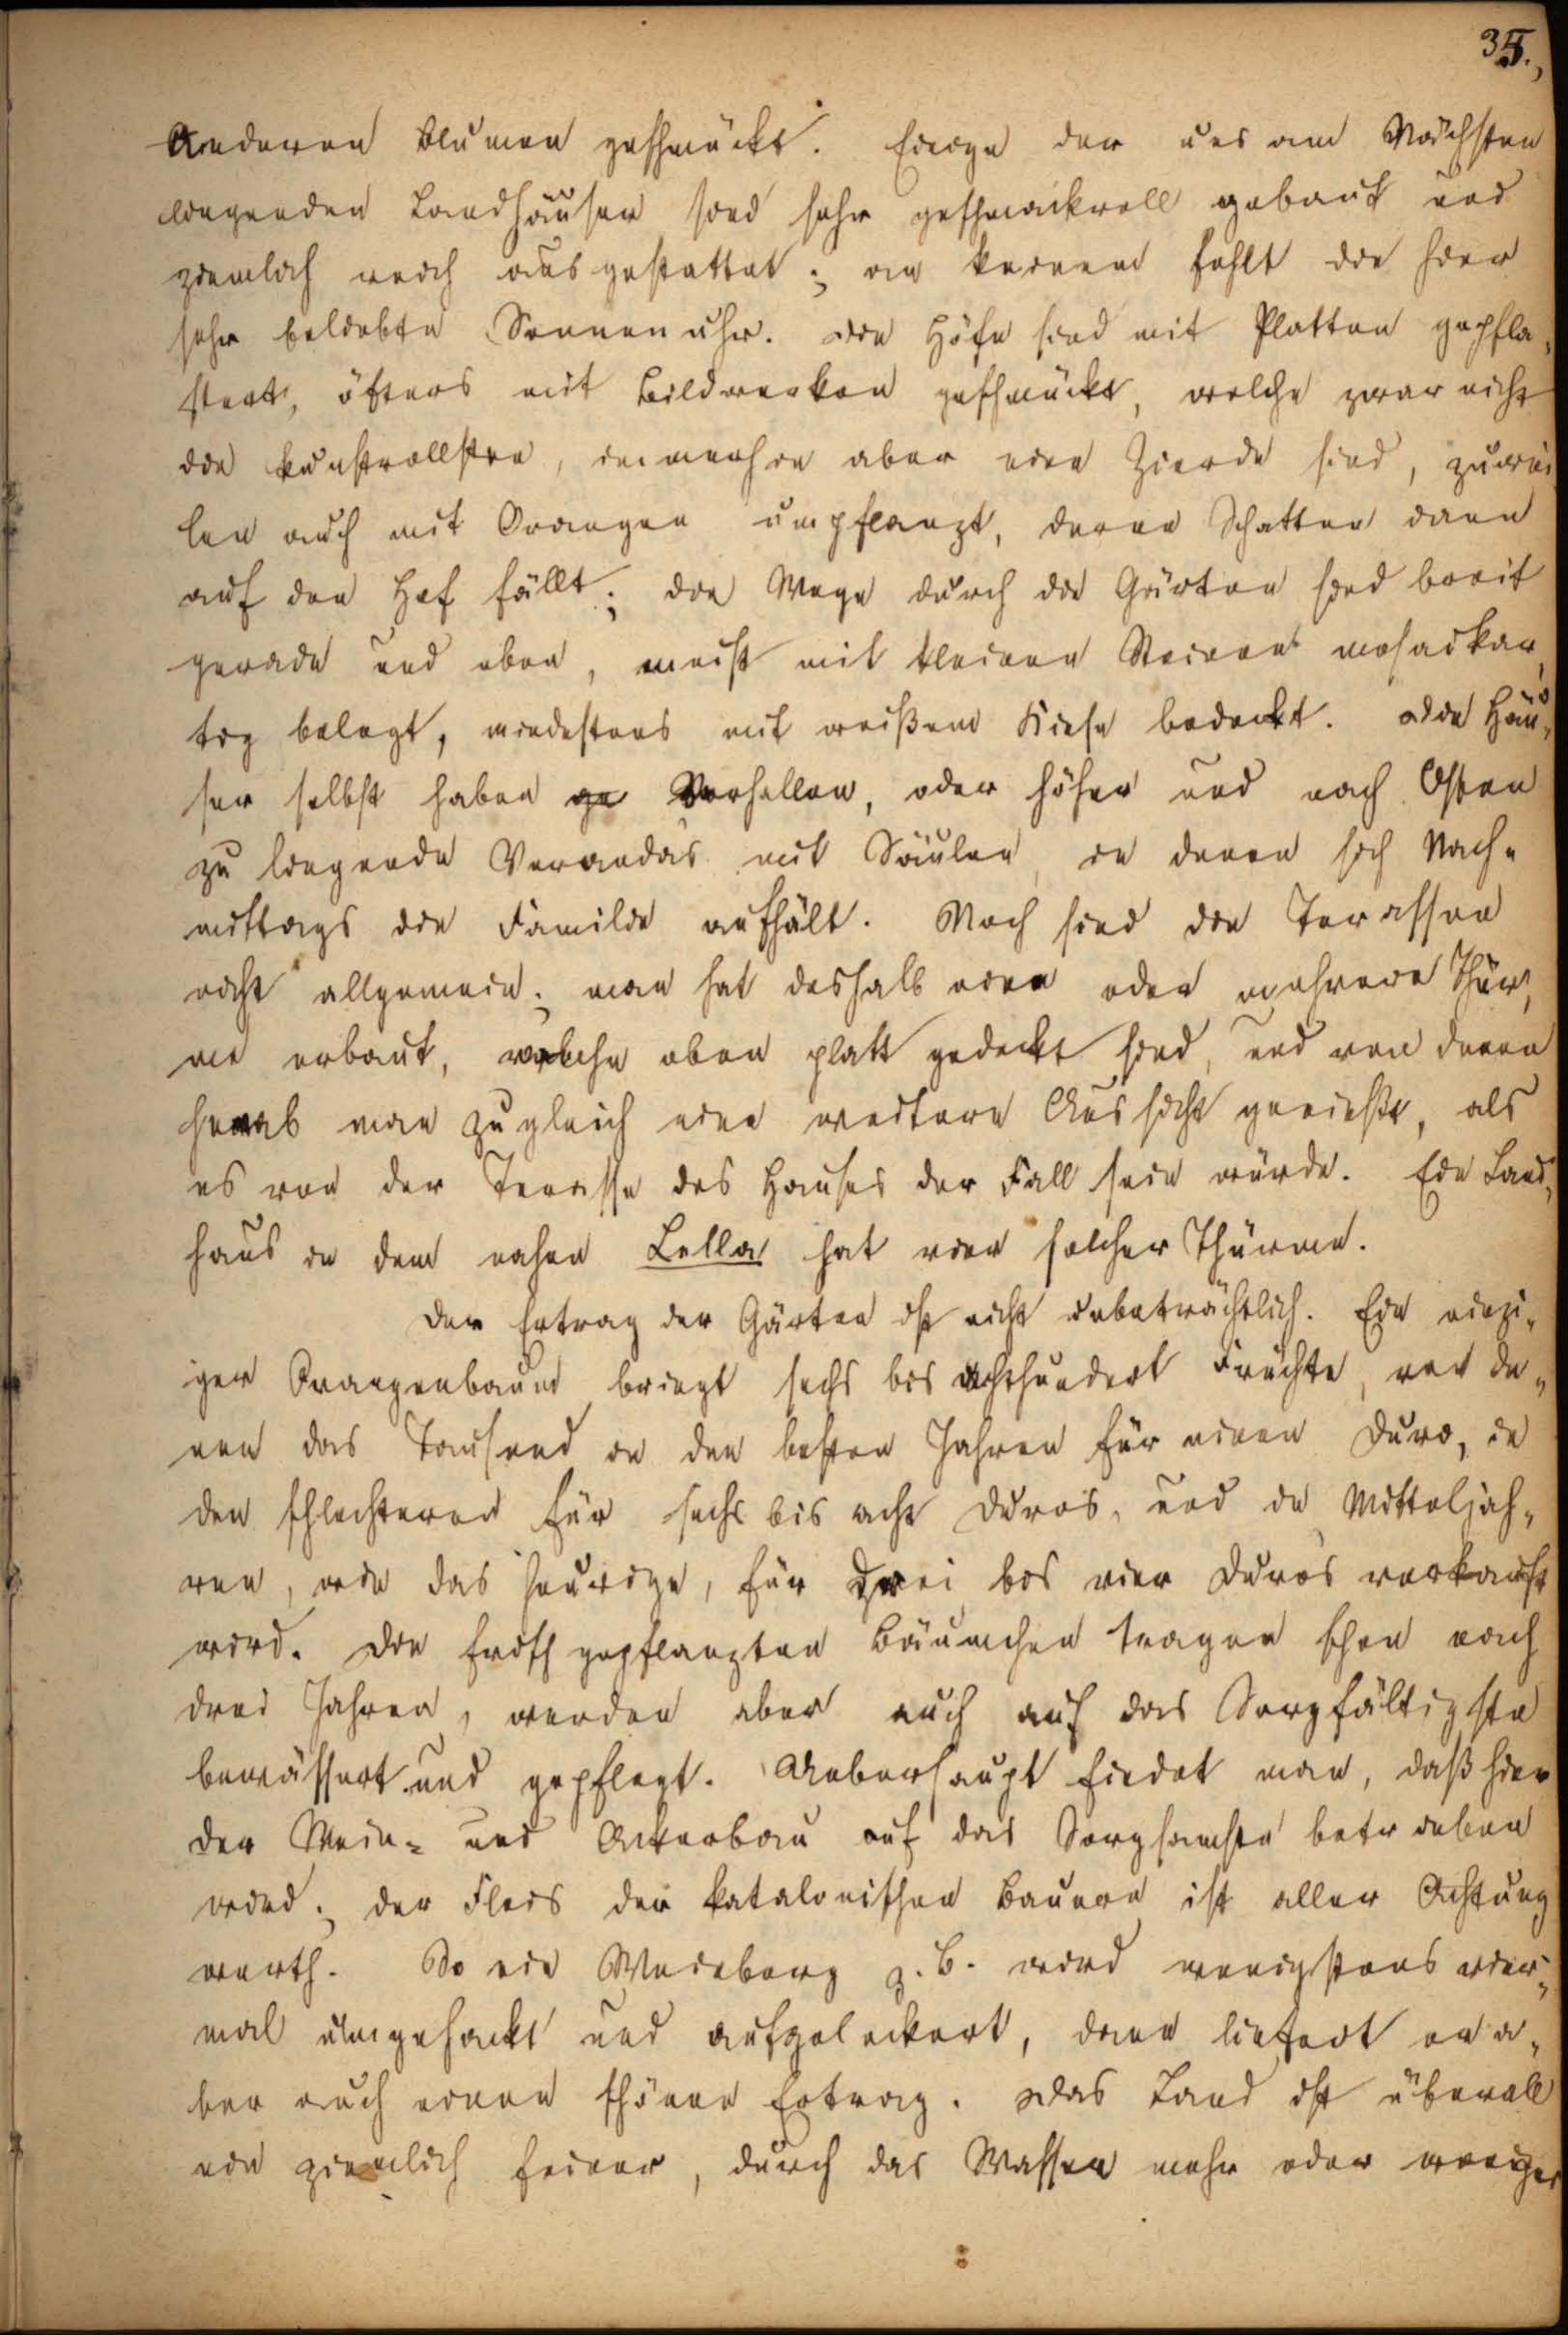 35.,
anderen Blumen geschmückt. Einige der uns am Nächsten
liegenden Landhäuser sind sehr geschmackvoll gebaut und
ziemlich reich ausgestattet; an keinem fehlt die hier
sehr beliebte Sonnenuhr. Die Höfe sind mit Platten gepfla„
stert, öfters mit Bildwerken geschmückt, welche zwar nicht
die kunstvollsten, immerhin aber eine Zierde sind, zuwei
len auch mit Orangen umpflanzt, deren Schatten dann
auf den Hof fällt; die Wege durch die Gärten sind breit
gerade und eben, meist mit kleinen Steinen mosaikar„
tig belegt, mindestens mit weißem Kiese bedeckt. Die Häu„
ser selbst haben ge Vorhallen, oder höher und nach Osten
zu liegende Verandas mit Säulen, in denen sich Nach„
mittags die Familie aufhält. Noch sind die Terassen
nicht allgemein; man hat deshalb einen oder mehrere Thür„
me erbaut, welche oben platt gedeckt sind, und von denen
herab man zugleich eine weitere Aussicht genießt, als
es von der Terasse des Hauses der Fall sein würde. Ein Land„
haus in dem nahen Lella hat vier solcher Thürme.
Der Ertrag der Gärten ist nicht unbeträchtlich. Ein einzi„
ger Orangenbaum bringt sechs bis achthundert Früchte, von de„
nen das Tausend in den besten Jahren für einen Duro, in
den schlechteren für sechs bis acht Duros, und in Mitteljah„
ren, wie das heurige, für drei bis vier Duros verkauft
wird. Die frisch gepflanzten Bäumchen tragen schon nach
drei Jahren, werden aber auch auf das Sorgfältigste
bewässert und gepflegt. Ueberhaupt findet man, daß hier
der Wein- und Ackerbau auf das Sorgsamste betrieben
wird; der Fleis der katalonischen Bauern ist aller Achtung
werth. So ein Weinberg z. B. wird wenigstens vier„
mal umgehackt und aufgelockert, dann liefert er a„
ber auch einen schönen Ertrag. Das Land ist überall
ein ziemlich feiner, durch das Wasser mehr oder weniger